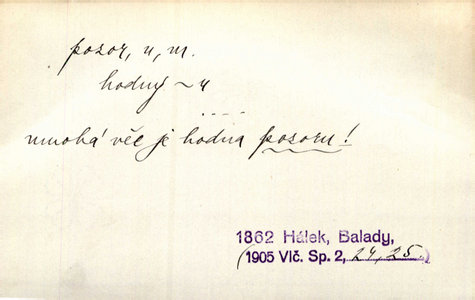 pozor, u, m.
hodný ~u
....
mnohá věc je hodna pozoru!
1862 Hálek, Balady,
(1905 Vlč. Sp. 2, 24, 25.)